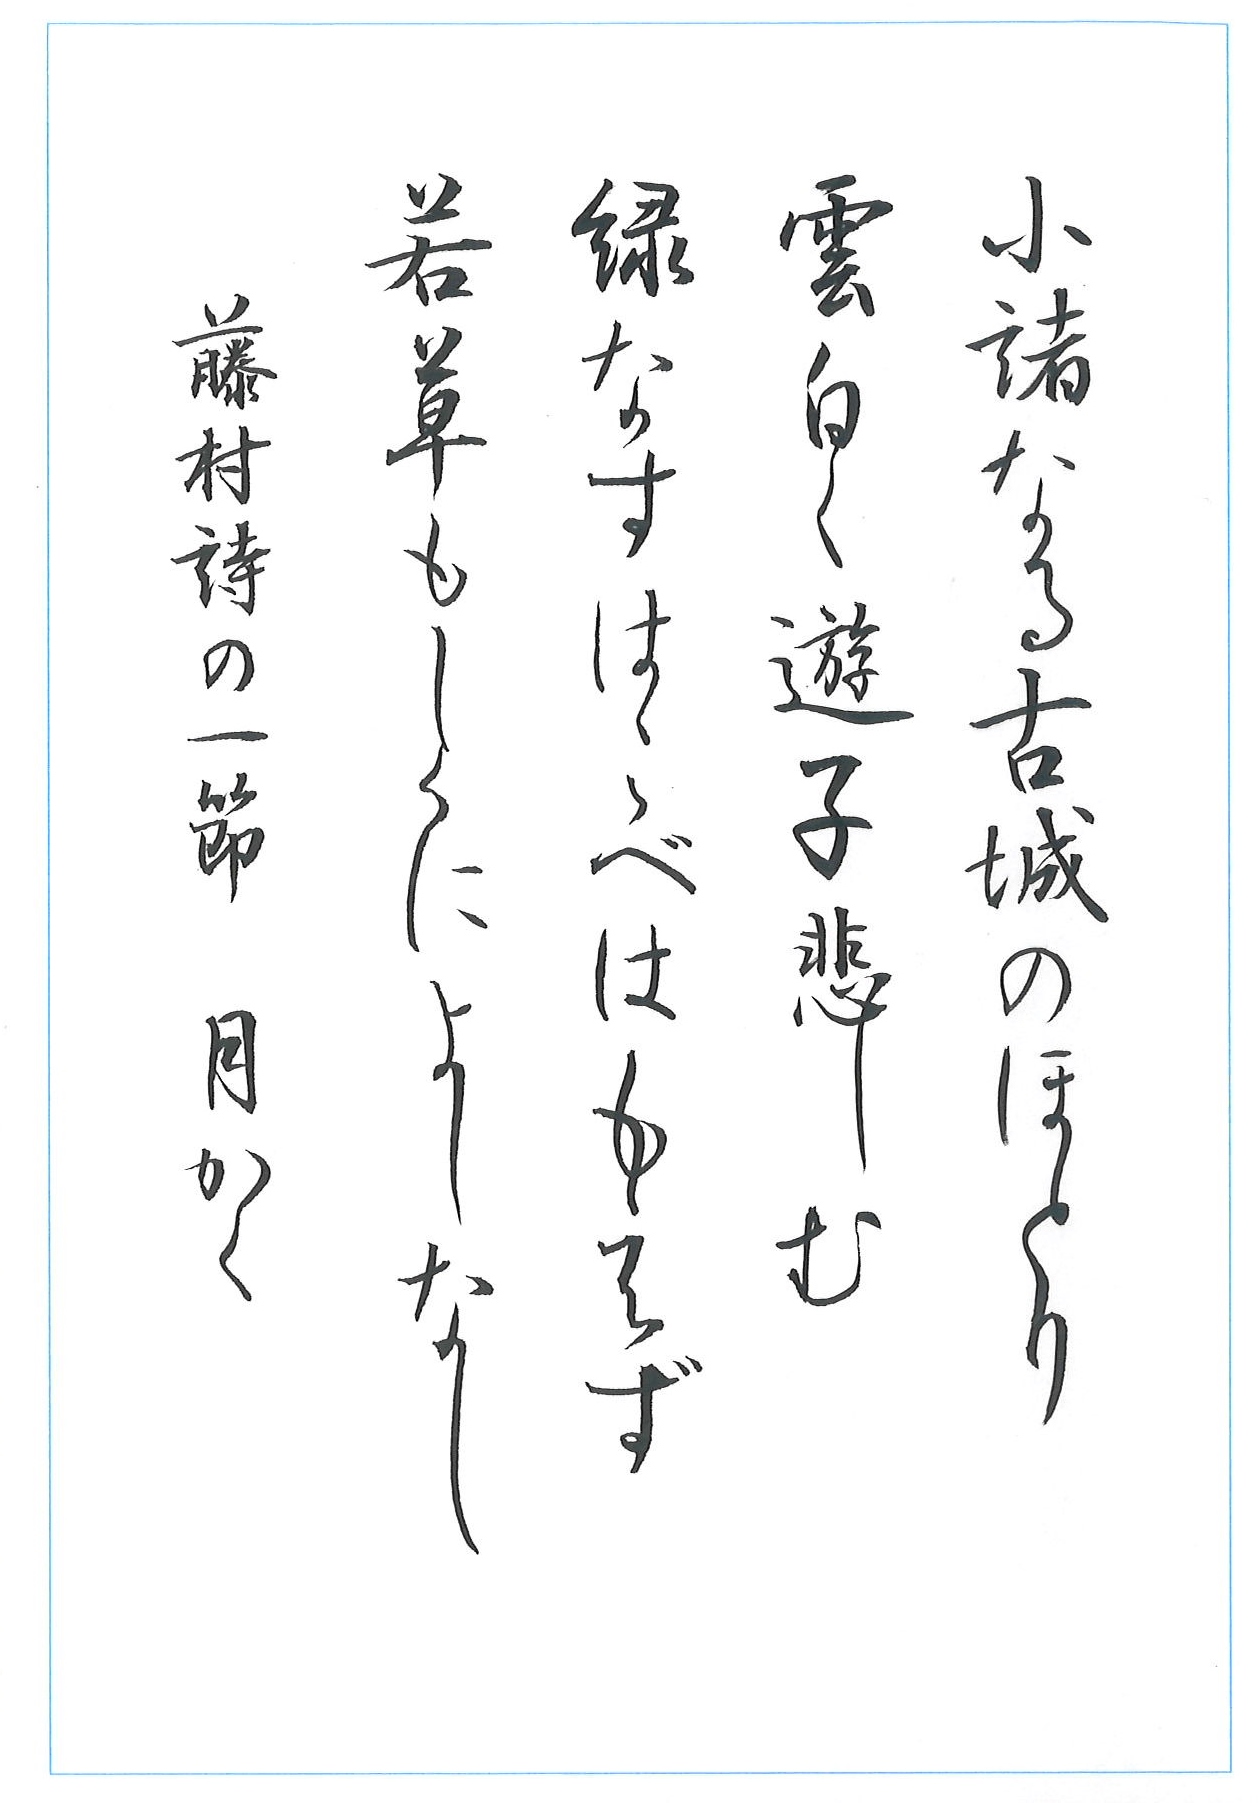 小諸なる古城のほとり
雲白く遊子悲しむ
緑なすはこべはもえず
若草もしくによしなし
藤村詩の一節　月かく